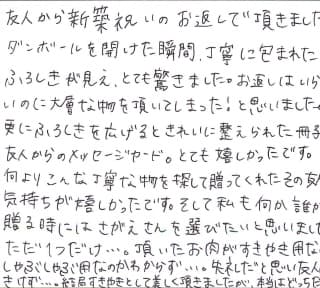 友人から新築祝いのお返しで頂きました
ダンボールを開けた瞬間、丁寧に包まれた
ふろしきが見え、とても驚きました。お返しはいら
いのに大層な物を頂いてしまった！と思いました
更にふろしきを広げるときれいに整えられた冊子
友人からのメッセージカード。とても嬉しかったです。
何よりこんな丁寧な物を探して贈ってくれたその友
気持ちが嬉しかったです。そして私も何か誰か
贈る時にはさがえさんを選びたいと思いまし
ただ1つだけ…。頂いたお肉がすきやき用な
しゃぶしゃぶ用なのかわからず…。失礼だと思い友人
きけず…。結局すきやきとして美しく頂きましたが、本当はどっちだ